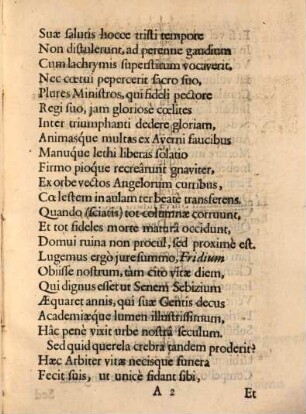 Suæ salutis hocce tristi tempore
Non distulerunt, ad perenne gaudium
Cum lachrymis superstitum vocaverit,
Nec cœtui pepercerit sacro suo,
Plures Ministros, qui fideli pectore
Regi suo, jam gloriose cœlites
Inter triumphanti dedere gloriam,
Animasque multas ex Averni faucibus
Manuque lethi liberas solatio
Firmo pioque recreârunt gnaviter,
Ex orbe vectos Angelorum curribus,
Cœlestem in aulam ter beatè transferens.
Quando (sciatis) tot columnæ corruunt,
Et tot fideles morte maturâ occidunt,
Domui ruina non procul, sed proximè est.
Lugemus ergò jure summo, Fridium
Obiisse nostrum, tàm citò vitæ diem,
Qui dignus esset ut Senem Sebizium
Æquaret annis, qui suæ Gentis decus
Academiæque lumen illustrissimum,
Hâc penè vixit urbe nostrâ seculum.
Sed quid querela crebra tandem proderit?
Hæc Arbiter vitæ necisque funera
Fecit suis, ut unicè fidant sibi,
A 2
Et